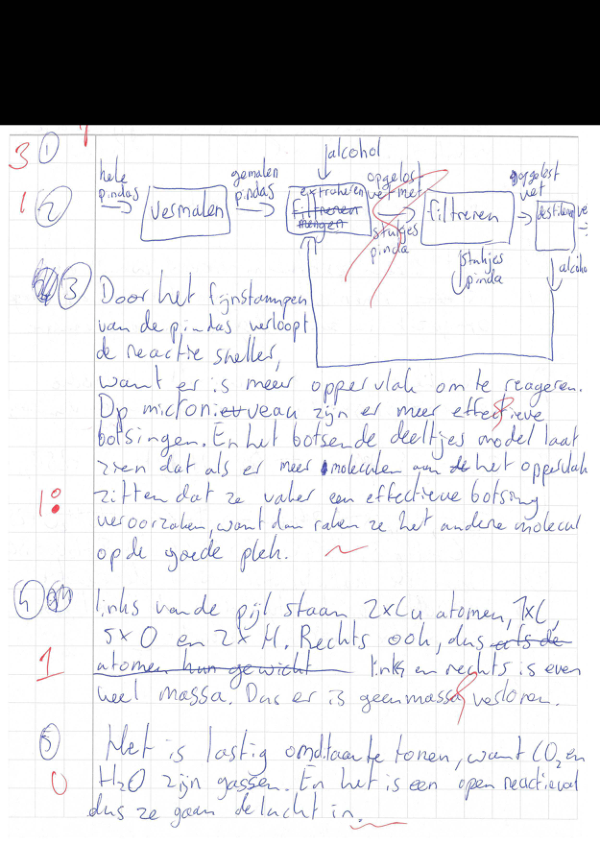 3 ①
alcohol
hele pindas → Vermalen → gemalen pindas → extraheren
filtreren
mengen
opgelost vet met stukjes pinda → filtreren → opgelost vet
stukjes pinda
alcoho
1 ②
③ Door het fijnstampen
van de pindas verloopt
de reactie sneller,
want er is meer oppervlak om te reageren.
Op micronieuveau zijn er meer effectieve
botsingen. En het botsende deeltjes model laat
zien dat als er meer moleculen aan de het oppervlak
1 zitten dat ze vaker een effectieve botsing
veroorzaken, want dan raken ze het andere molecuul
op de goede plek.
④ links van de pijl staan 2xCu atomen, 1xC,
5x O en 2x H. Rechts ook, dus als de
1 atomen hun gewicht links en rechts is even
veel massa. Dus er is geen massa verloren.
⑤ Het is lastig om dit aan te tonen, want CO₂ en
0 H₂O zijn gassen. En het is een open reactievat
dus ze gaan de lucht in.